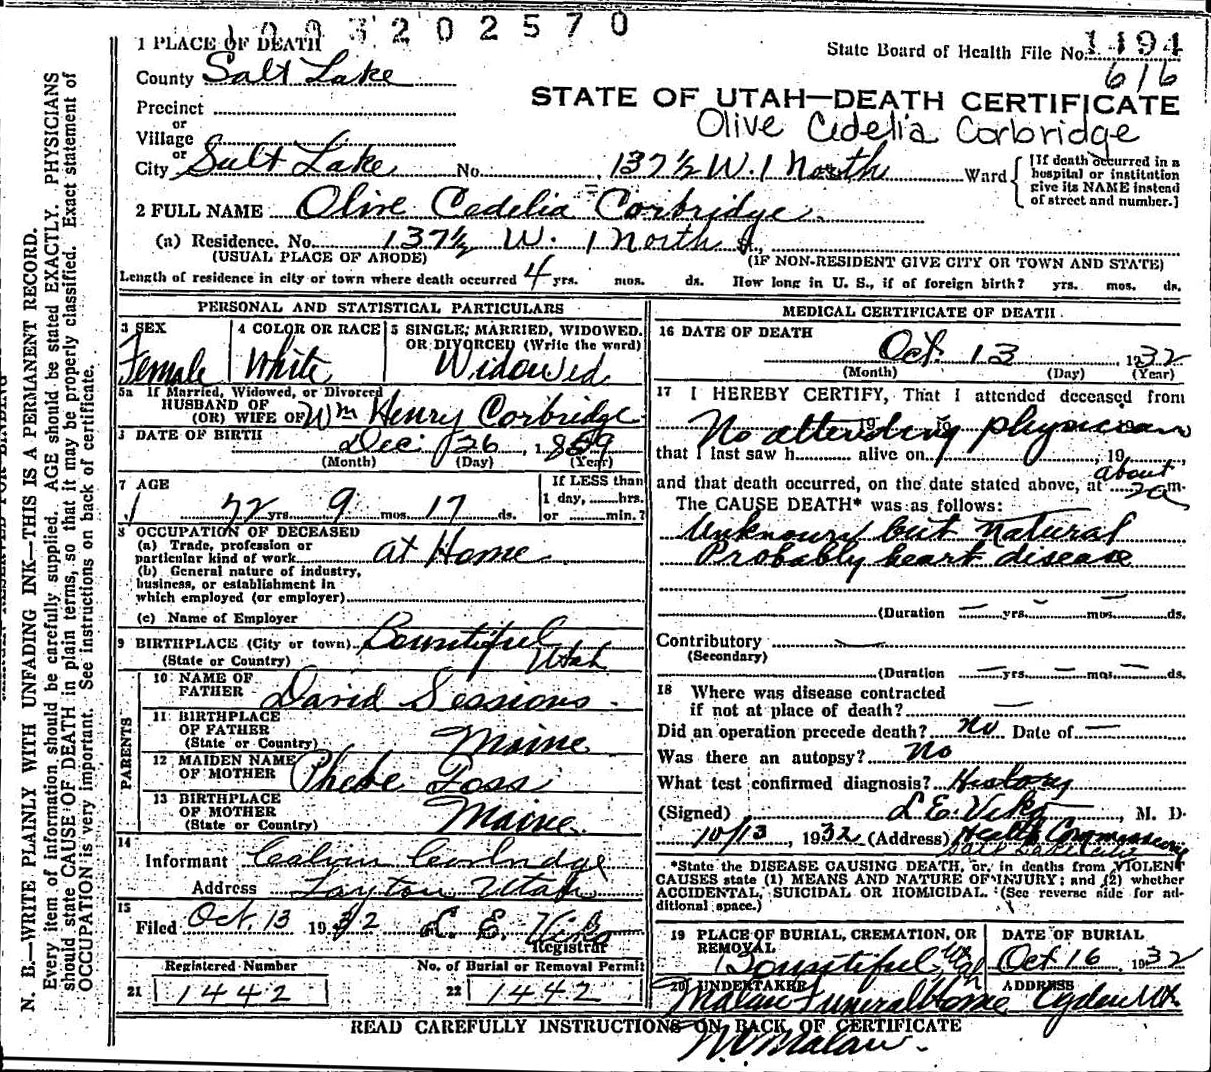 1003202570
1 PLACE OF DEATH
State Board of Health File No. 1494
County Salt Lake
616
Precinct
or
Village
or
STATE OF UTAH—DEATH CERTIFICATE
Olive Cedelia Corbridge
City Salt Lake No. 137½ W. 1 North Ward
[If death occurred in a hospital or institution give its NAME instead of street and number.]
2 FULL NAME Olive Cedelia Corbridge
(a) Residence. No. 137½ W. 1 North St.,
(USUAL PLACE OF ABODE) (IF NON-RESIDENT GIVE CITY OR TOWN AND STATE)
Length of residence in city or town where death occurred 4 yrs. mos. ds. How long in U. S., if of foreign birth? yrs. mos. ds.
PERSONAL AND STATISTICAL PARTICULARS
3 SEX
Female
4 COLOR OR RACE
White
5 SINGLE, MARRIED, WIDOWED.
OR DIVORCED (Write the word)
Widowed
5a If Married, Widowed, or Divorced
HUSBAND OF
(OR) WIFE OF Wm Henry Corbridge
DATE OF BIRTH
Dec 26, 1859
(Month) (Day) (Year)
7 AGE
72 yrs. 9 mos. 17 ds.
If LESS than
1 day, hrs.
or min.?
8 OCCUPATION OF DECEASED
(a) Trade, profession or
particular kind of work at Home
(b) General nature of industry,
business, or establishment in
which employed (or employer)
(c) Name of Employer
9 BIRTHPLACE (City or town) Bountiful
(State or Country) Utah
PARENTS
10 NAME OF
FATHER David Sessions
11 BIRTHPLACE
OF FATHER
(State or Country) Maine
12 MAIDEN NAME
OF MOTHER Phebe Foss
13 BIRTHPLACE
OF MOTHER
(State or Country) Maine
14
Informant Calvin Corbridge
Address Layton Utah
15
Filed Oct. 13 1932 L. E. Viko
Registrar
Registered Number No. of Burial or Removal Permit
21 1442 22 1442
MEDICAL CERTIFICATE OF DEATH
16 DATE OF DEATH
Oct. 13 1932
(Month) (Day) (Year)
17 I HEREBY CERTIFY, That I attended deceased from
No attending physician
that I last saw h alive on , 19
about
and that death occurred, on the date stated above, at 2 a m.
The CAUSE DEATH* was as follows:
Unknown but natural
Probably heart disease
(Duration yrs. mos. ds.
Contributory
(Secondary)
(Duration yrs. mos. ds.
18 Where was disease contracted
if not at place of death?
Did an operation precede death? No Date of
Was there an autopsy? No
What test confirmed diagnosis? History
(Signed) L E. Viko, M. D.
10/13, 1932 (Address) Health Commissioner
Salt Lake City
*State the DISEASE CAUSING DEATH, or, in deaths from VIOLENT
CAUSES state (1) MEANS AND NATURE OF INJURY; and (2) whether
ACCIDENTAL, SUICIDAL OR HOMICIDAL. (See reverse side for ad-
ditional space.)
19 PLACE OF BURIAL, CREMATION, OR
REMOVAL
Bountiful, Utah
DATE OF BURIAL
Oct 16 1932
20 UNDERTAKER
Malan Funeral Home
ADDRESS
Ogden Ut.
READ CAREFULLY INSTRUCTIONS ON BACK OF CERTIFICATE
Malan
N. B.—WRITE PLAINLY WITH UNFADING INK—THIS IS A PERMANENT RECORD.
Every item of information should be carefully supplied. AGE should be stated EXACTLY. PHYSICIANS
should state CAUSE OF DEATH in plain terms, so that it may be properly classified. Exact statement of
OCCUPATION is very important. See instructions on back of certificate.